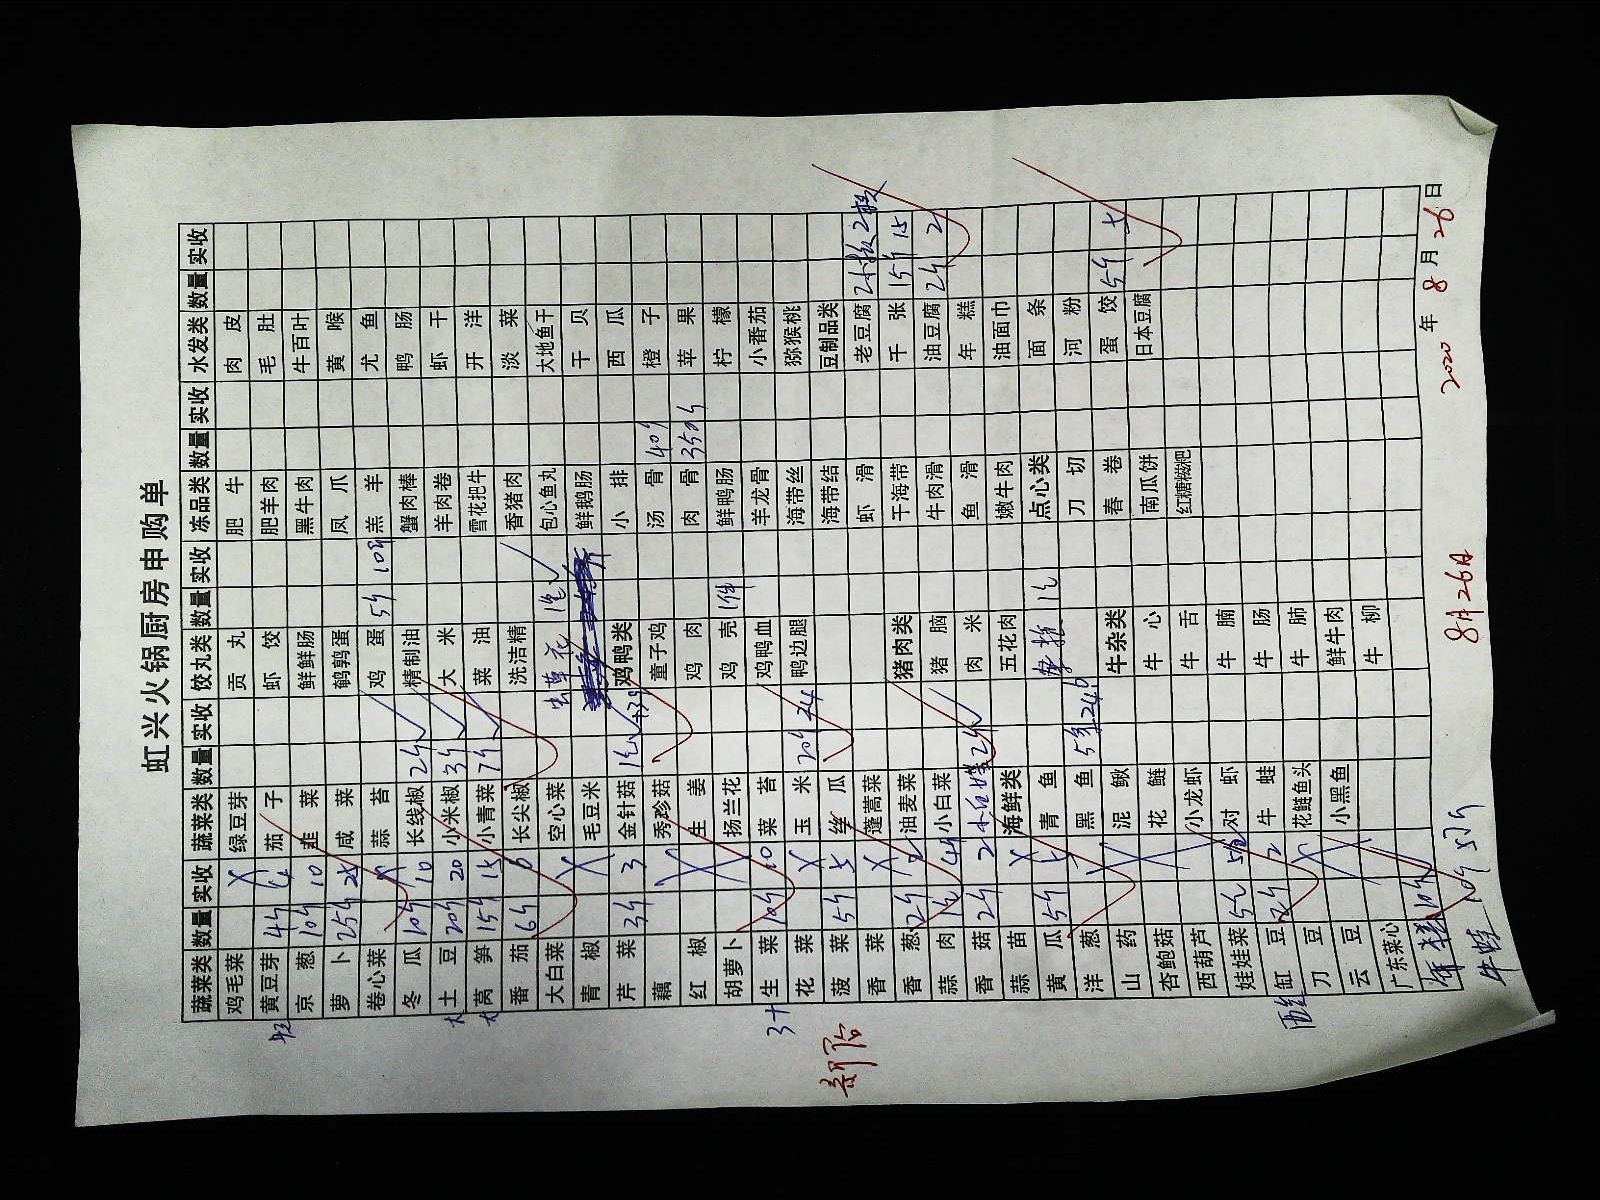 虹兴火锅厨房申购单
蔬菜类 数量 实收 蔬菜类 数量 实收 饺丸类 数量 实收 冻品类 数量 实收 水发类 数量 实收
鸡毛菜 绿豆芽 贡丸 肥牛 肉皮
黄豆芽 4斤 4 茄子 虾饺 肥羊肉 毛肚
京葱 10斤 10 韭菜 鲜鲜肠 黑牛肉 牛百叶
萝卜 25斤 25 咸菜 鹌鹑蛋 凤爪 黄喉
卷心菜 蒜苔 鸡蛋 5斤 10斤 羔羊 尤鱼
冬瓜 10斤 10 长线椒 2斤 精制油 蟹肉棒 鸭肠
土豆 20斤 20 小米椒 3斤 大米 羊肉卷 虾干
莴笋 15斤 15 小青菜 7斤 菜油 雪花把牛 开洋
番茄 6斤 6 长尖椒 洗洁精 香猪肉 淡菜
大白菜 空心菜 虫草花 包心鱼丸 大地鱼干
青椒 毛豆米 鲜鹅肠 干贝
芹菜 3斤 3 金针菇 鸡鸭类 小排 西瓜
藕 秀珍菇 童子鸡 汤骨 40斤 橙子
红椒 生姜 鸡肉 肉骨 350斤 苹果
胡萝卜 扬兰花 鸡壳 1件 鲜鸭肠 柠檬
生菜 10斤 10 菜苔 鸡鸭血 羊龙骨 小番茄
花菜 玉米 20斤 24 鸭边腿 海带丝 猕猴桃
菠菜 5斤 5 丝瓜 海带结 豆制品类
香菜 蓬蒿菜 虾滑 老豆腐 2板 2板
香葱 2斤 2 油麦菜 猪肉类 干海带 千张 15斤 15
蒜肉 小白菜 猪脑 牛肉滑 油豆腐 2斤 2
香菇 2斤 2 肉米 鱼滑 年糕
蒜苗 海鲜类 五花肉 嫩牛肉 油面巾
黄瓜 5斤 青鱼 点心类 面条
洋葱 黑鱼 牛杂类 刀切 河粉
山药 泥鳅 牛心 春卷 蛋饺 5斤
杏鲍菇 花鲢 牛舌 南瓜饼 日本豆腐
西胡芦 小龙虾 牛腩 红糖糍粑
娃娃菜 对虾 牛肠
缸豆 2斤 2 牛蛙 牛肺
刀豆 花鲢鱼头 鲜牛肉
云豆 小黑鱼 牛柳
广东菜心
牛蛙 10斤
2020 年 8 月 26 日
8月26日